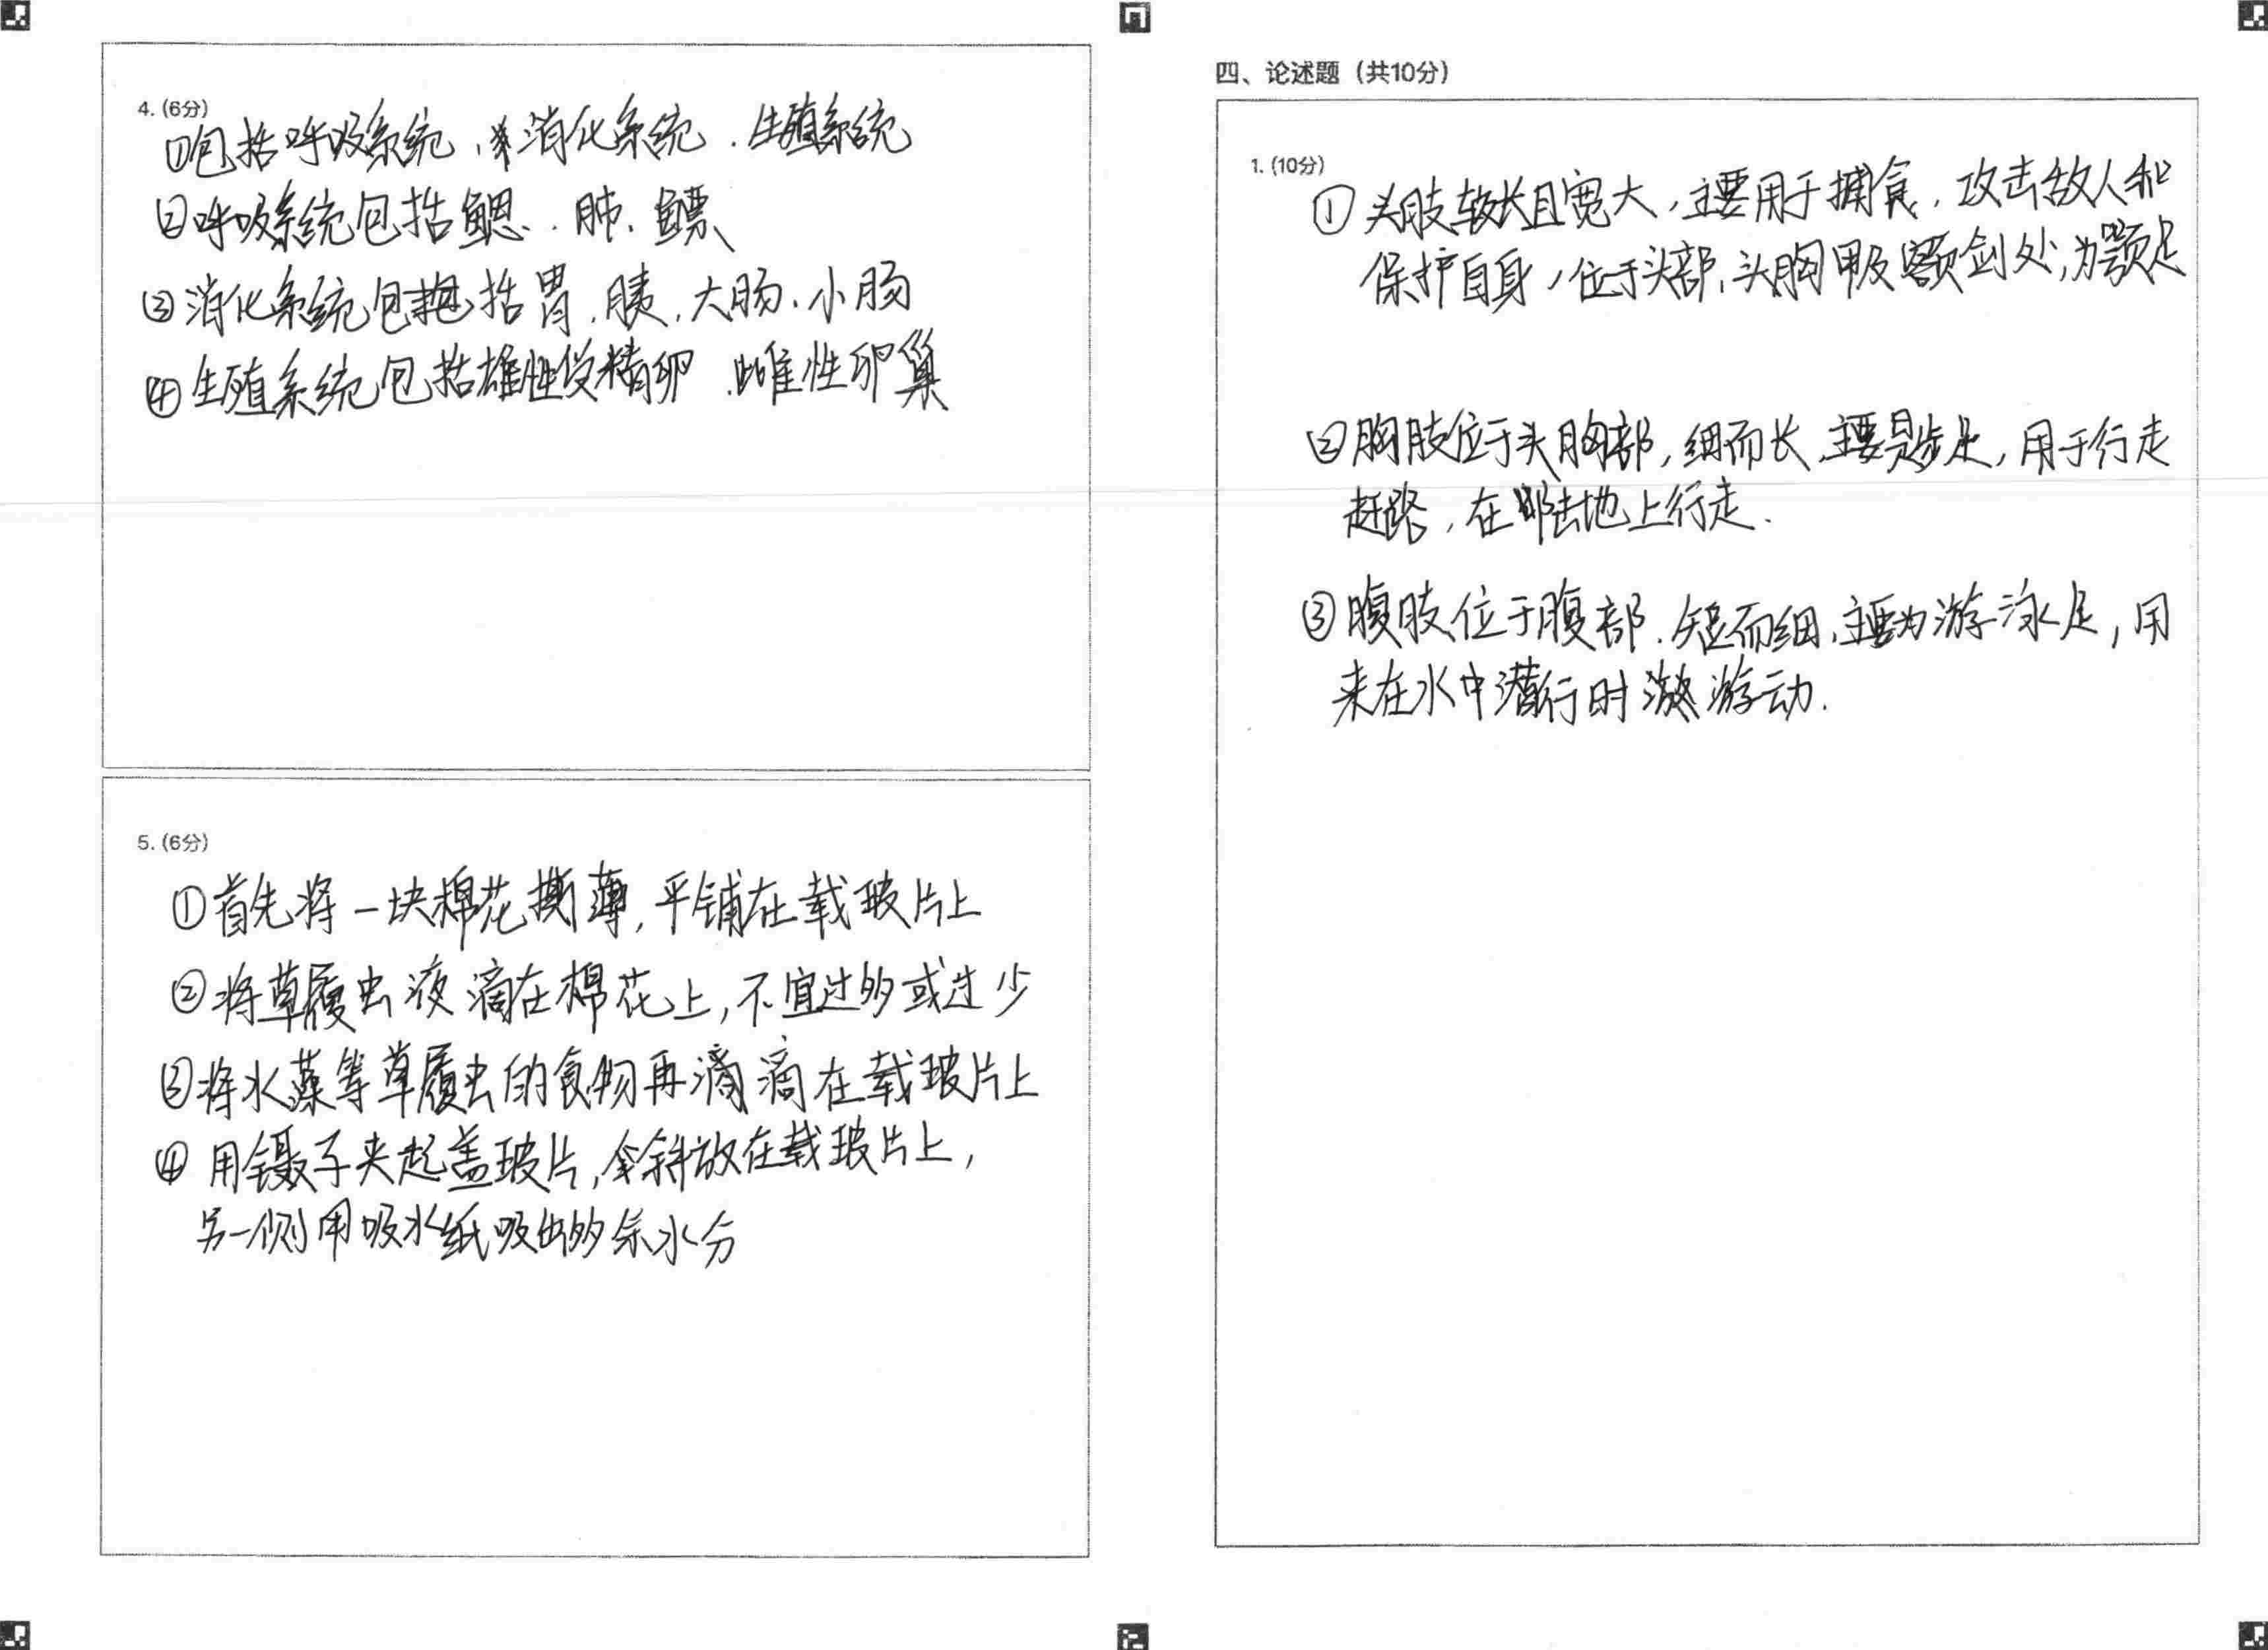 4. (6分)
①包括呼吸系统，消化系统．生殖系统
②呼吸系统包括鳃．肺、鳔
③消化系统包括胃．胰．大肠．小肠
④生殖系统包括雄性受精卵．雌性卵巢
5. (6分)
①首先将一块棉花撕薄，平铺在载玻片上
②将草履虫液滴在棉花上，不宜过多或过少
③将水藻等草履虫的食物再滴在载玻片上
④用镊子夹起盖玻片，斜放在载玻片上，
另一侧用吸水纸吸出多余水分
四、论述题（共10分）
1. (10分)
①头肢较长且宽大，主要用于捕食．攻击敌人和
保护自身，位于头部，头胸甲及额剑处，为颚足
②胸肢位于头胸部，细而长．主要是步足，用于行走
赶路，在陆地上行走．
③腹肢位于腹部．短而细．主要为游泳足，用
来在水中潜行时游动．